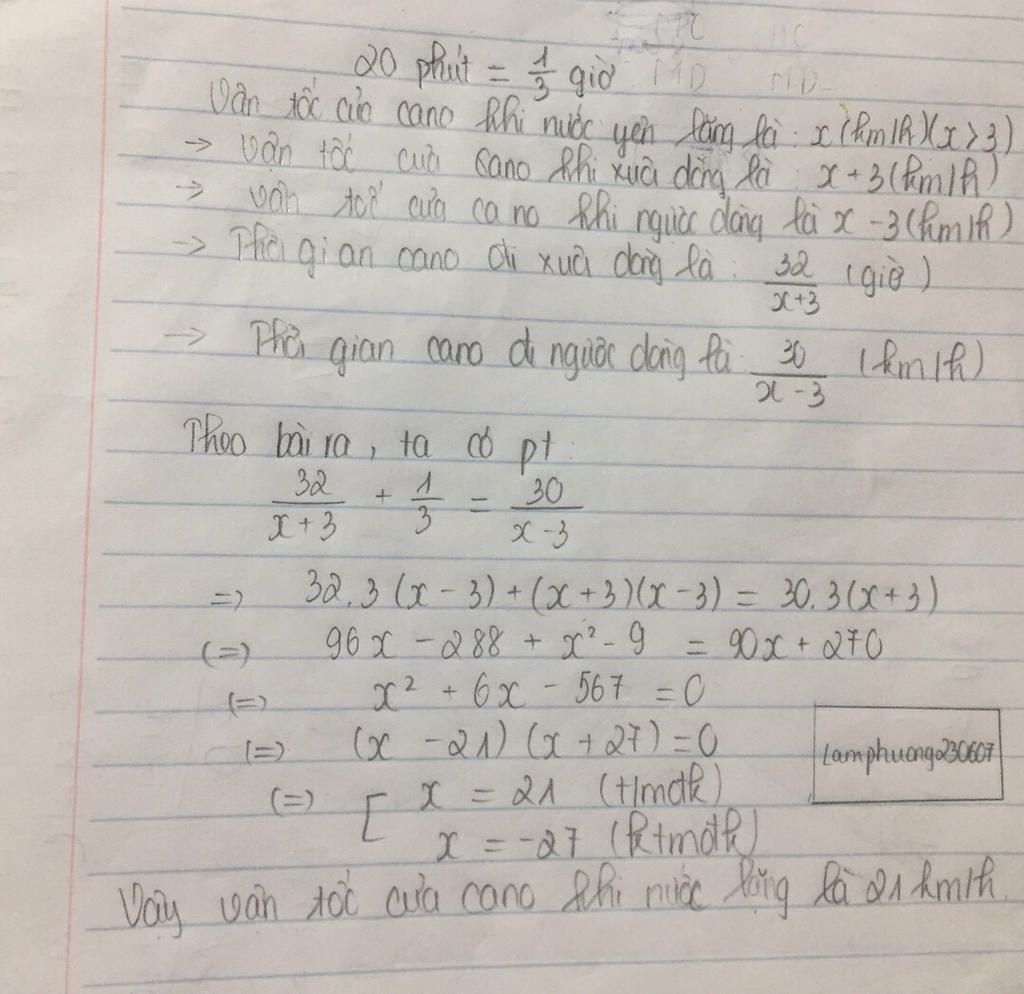 20 phút = 1/3 giờ
Vận tốc của cano khi nước yên lặng là : x (km/h)(x>3)
→ Vận tốc của cano khi xuôi dòng là : x + 3 (km/h)
→ Vận tốc của ca no khi ngược dòng là x - 3 (km/h)
→ Thời gian cano đi xuôi dòng là : 32/(x+3) (giờ)
→ Thời gian cano đi ngược dòng là : 30/(x-3) (km/h)
Theo bài ra, ta có pt
32/(x+3) + 1/3 = 30/(x-3)
=> 32.3(x-3)+(x+3)(x-3) = 30.3(x+3)
(=) 96x - 288 + x² - 9 = 90x + 270
(=) x² + 6x - 567 = 0
(=) (x - 21)(x + 27) = 0
(=) [ x = 21 (t/mđk)
x = -27 (ktmđk)
lamphuong230607
Vậy vận tốc của cano khi nước lặng là 21 km/h.